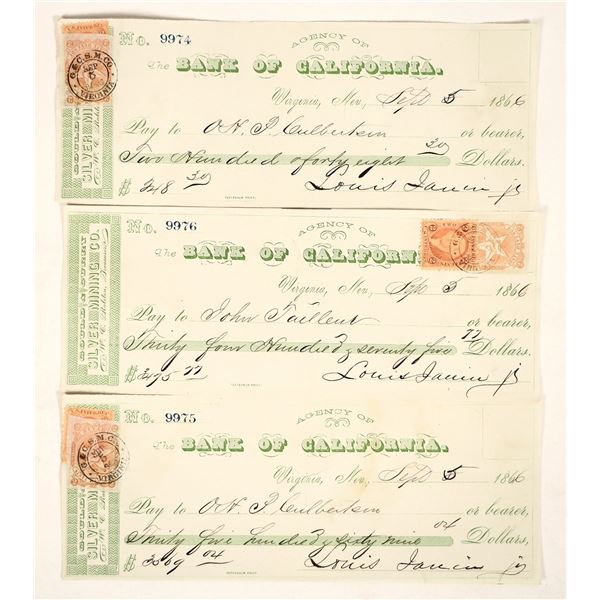 No. 9974
AGENCY OF
The BANK OF CALIFORNIA.
Virginia, Nev, Sept 5 1866
Pay to O H. P. Culbertson or bearer,
Two Hundred & forty eight 30 Dollars.
$ 248 30 Louis Janin jr
G & C. S. M. Co.
SEP 5
VIRGINIA
SILVER MINING
No. 9976
AGENCY OF
The BANK OF CALIFORN
Virginia, Nev, Sept 5 1866
Pay to John Taillent or bearer,
Thirty four Hundred & seventy five 77 Dollars.
$ 3475 77 Louis Janin jr
SILVER MINING CO.
No. 9975
AGENCY OF
The BANK OF CALIFORNIA.
Virginia, Nev, Sept 5 1866
Pay to O H. P. Culbertson or bearer,
Thirty five hundred & sixty nine 04 Dollars,
$ 3569 04 Louis Janin jr
G & C. S. M. Co.
VIRGINIA
SILVER M